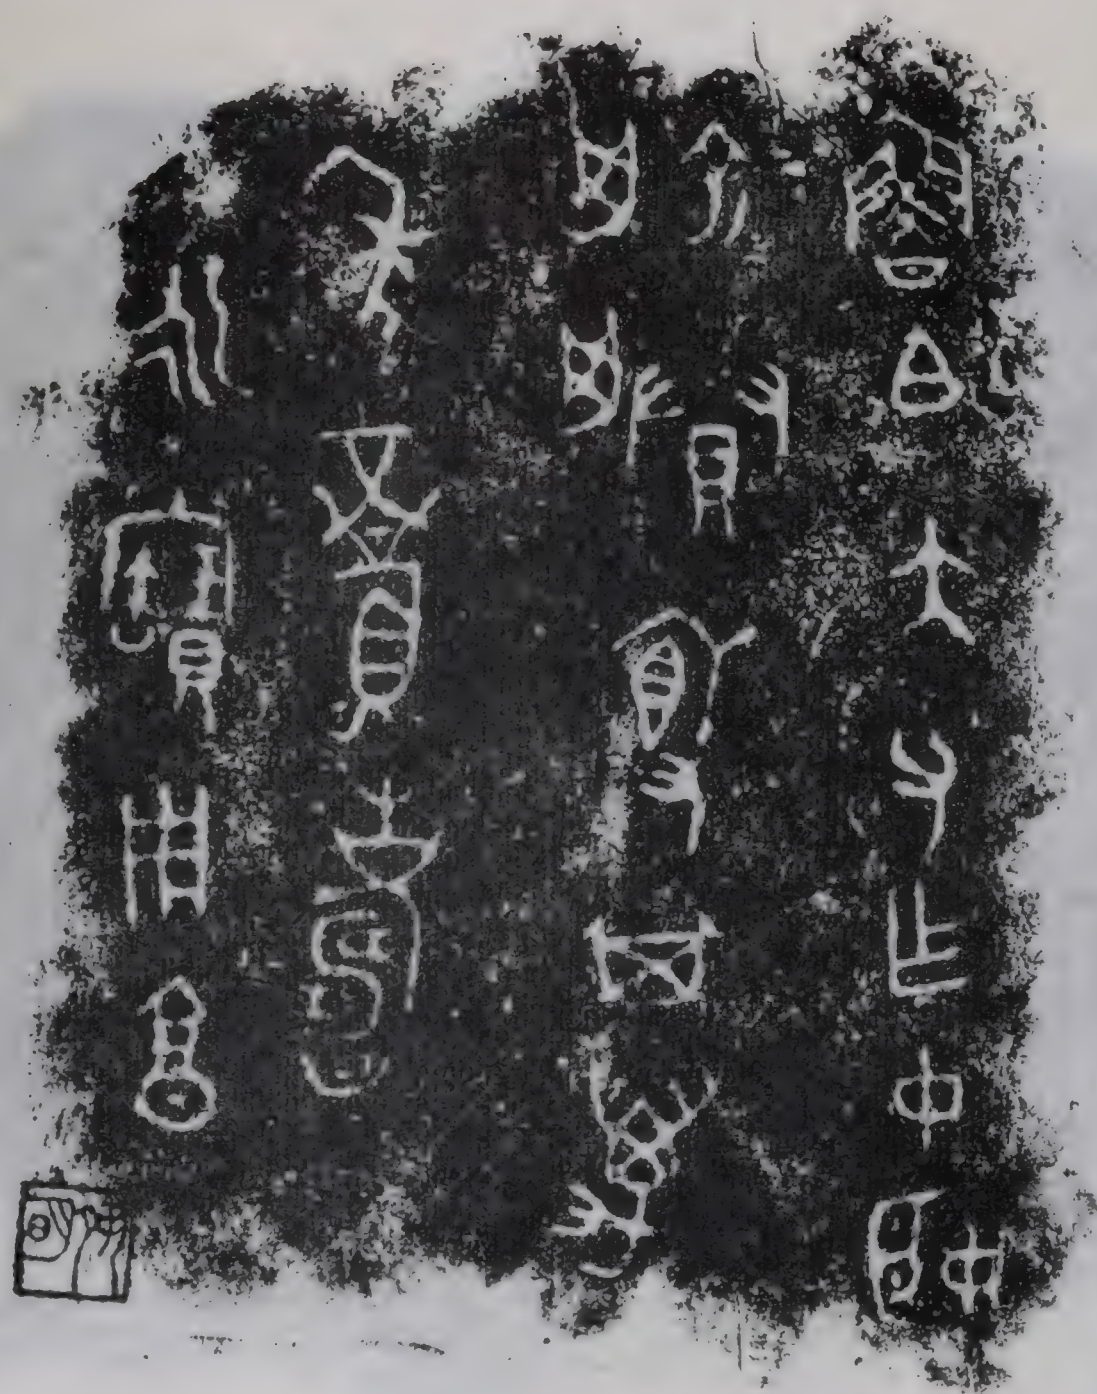 魯白大父乍中姬
俞賸𣪘其萬
年眉壽
永寶用享